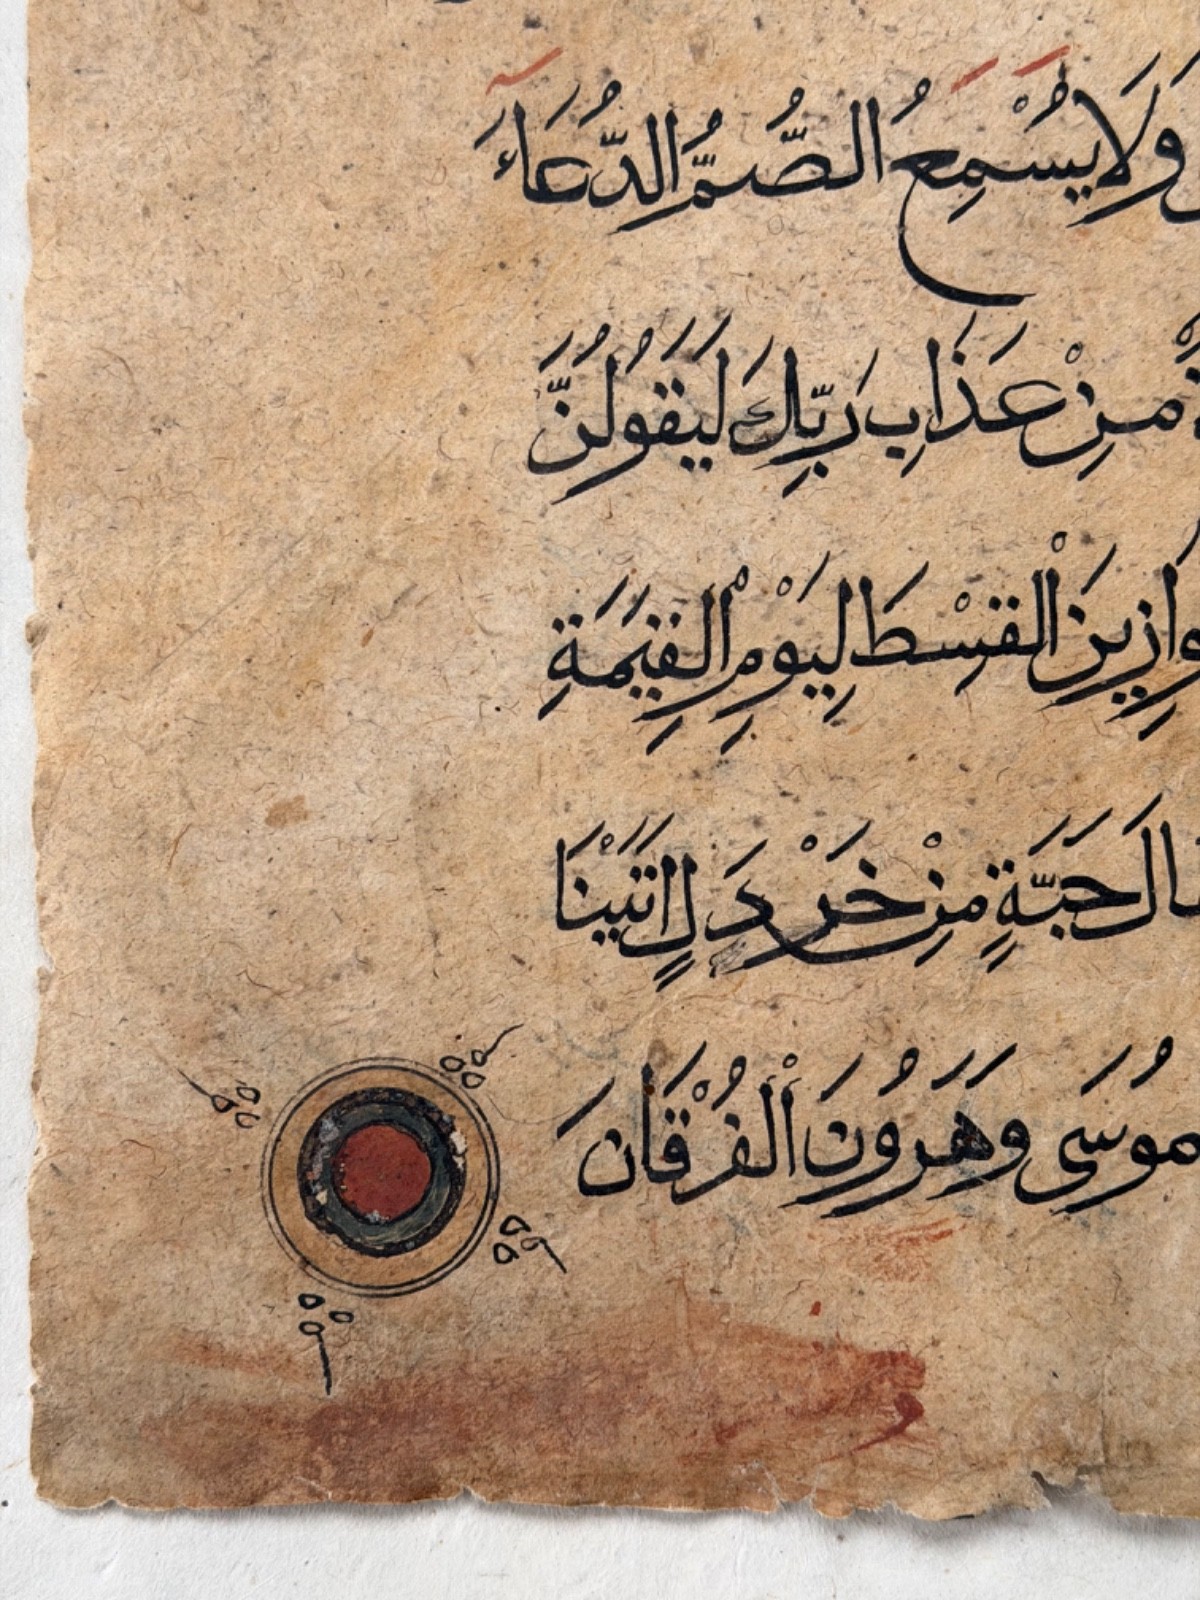 وَلَا يُسْمَعُ الصُّمُّ الدُّعَاءَ
مِنْ عَذَابِ رَبِّكَ لَيَقُولُنَّ
الْقِسْطَ لِيَوْمِ الْقِيَمَةِ
حَبَّةٍ مِنْ خَرْدَلٍ اتَيْنَا
مُوسَى وَهَرُونَ الْفُرْقَانَ